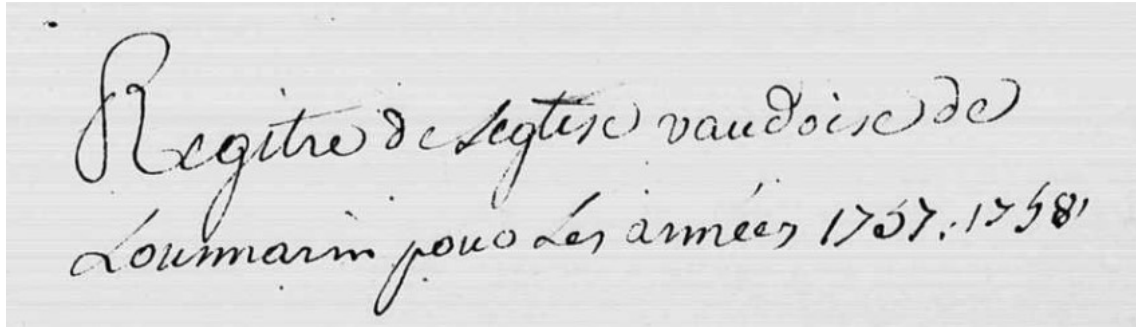 Regitre de leglise vaudoise de
Lourmarin pour les années 1757. 1758